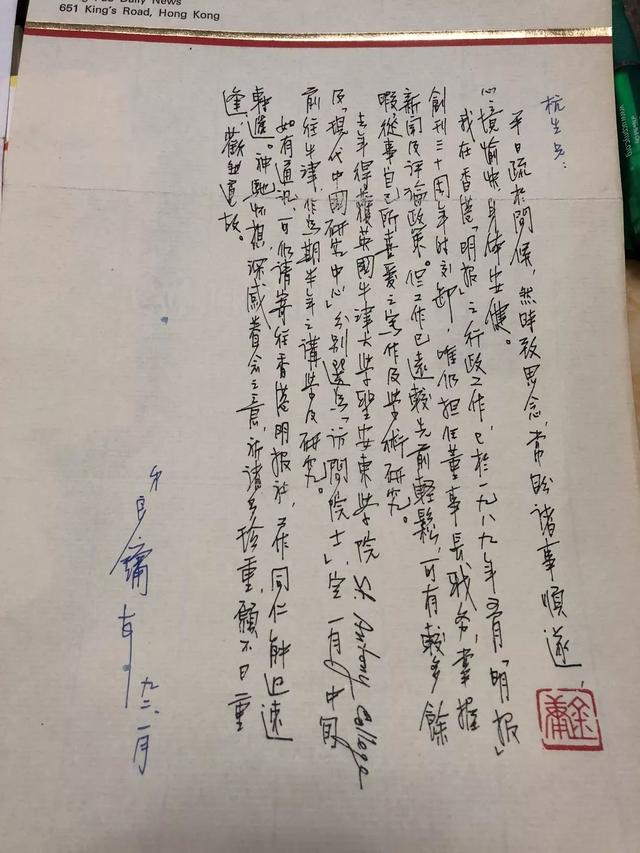 Daily News
651 King's Road, Hong Kong
杭生兄：
平日疏於問候，然時致思念，常盼諸事順遂，
心境愉快，身体安健。
我在香港「明報」之行政工作，已於一九八九年五月「明報」
創刊三十周年時刻卸，唯仍担任董事長職務，掌握
新聞及評論政策。但工作已遠較先前輕鬆，可有較多餘
暇從事自己所喜愛之寫作及學術研究。
去年得獲英國牛津大學聖安東學院 St. Antony College
及「現代中國研究中心」分別選為「訪問院士」，定一月中旬
前往牛津作為期半年之講學及研究。
如有通訊，可仍請寄往香港明報社，工作同仁能迅速
轉遞。神馳怀想，深感眷念之意，祈請多珍重，願不日重
逢，歡敘道故。
金庸
九二、一月